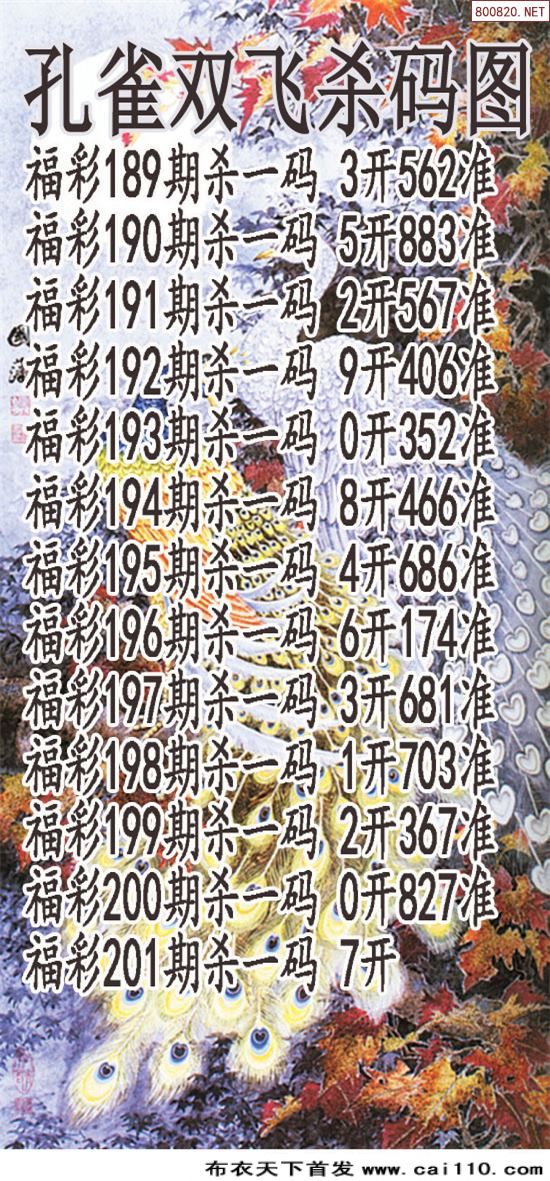 800820.NET
孔雀双飞杀码图
福彩189期杀一码 3开562准
福彩190期杀一码 5开883准
福彩191期杀一码 2开567准
福彩192期杀一码 9开406准
福彩193期杀一码 0开352准
福彩194期杀一码 8开466准
福彩195期杀一码 4开686准
福彩196期杀一码 6开174准
福彩197期杀一码 3开681准
福彩198期杀一码 1开703准
福彩199期杀一码 2开367准
福彩200期杀一码 0开827准
福彩201期杀一码 7开
布衣天下首发 www.cai110.com